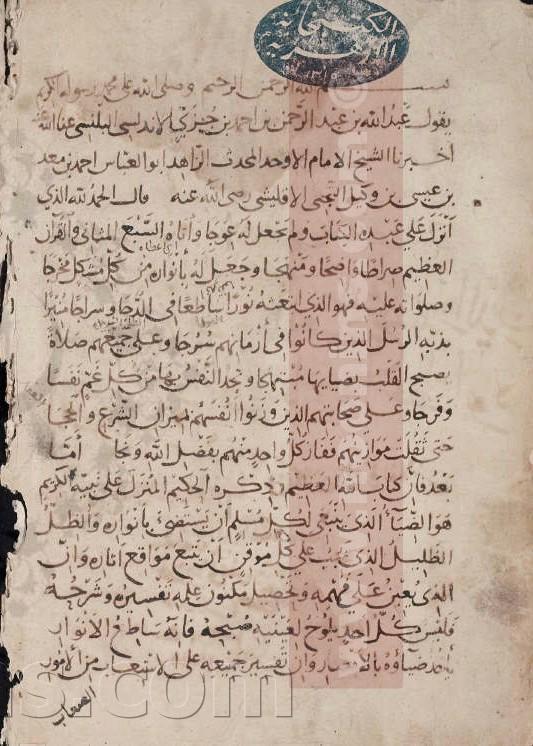 الكتبخانة
الازهرية
بسم الله الرحمن الرحيم وصلى الله على محمد رسوله الكريم
يقول عبد الله بن عبد الرحمن بن احمد بن الاندلسى البلنسى عفا الله عنه
اخبرنا الشيخ الامام الاوحد المحدث الزاهد ابو العباس احمد بن معد
بن عيسى بن وكيل التجيبى الاقليشى رضى الله عنه قال الحمد لله الذي
انزل على عبده الكتاب ولم يجعل له عوجا وآتاه السبع المثانى والقرآن
العظيم صراطا واضحا ومنهجا وجعل له بأنواره من كل مشكل مخرجا
وصلواته عليه فهو الذى ابتعثه نورا ساطعا فى الدجا وسراجا منيرا
الرسل الذين كانوا فى أزمانهم سرجا وعلى جميعهم صلاة
يصبح القلب بضيايها مبتهجا وتجد النفس بها من كل غم نفسا
وفرجا وعلى صحابتهم الذين وزنوا انفسهم بميزان الشرع والحجا
حتى ثقلت موازينهم ففاز كل واحد منهم بفضل الله ونجا أما
بعد فان كتاب الله العظيم وذكره الحكيم المنزل على نبيه الكريم
هو الضياء الذى ينبغى لكل مسلم أن يستضئ بأنواره والظل
الظليل الذى يجب على كل موقن أن يتبع مواقع اثاره وان
الذى يعين على فهمه وتحصيل مكنون علمه تفسيره وشرحه
فليس كل احد يلوح لعينيه صبحه فانه ساطع الانوار
ضياؤه بالابصار وان تفسير جميعه على الاستيعاب من الأمور
الصعاب